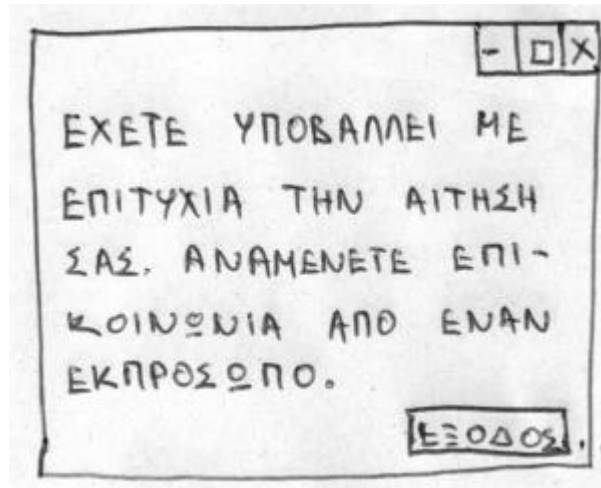 ΕΧΕΤΕ ΥΠΟΒΑΛΛΕΙ ΜΕ
ΕΠΙΤΥΧΙΑ ΤΗΝ ΑΙΤΗΣΗ
ΣΑΣ. ΑΝΑΜΕΝΕΤΕ ΕΠΙ-
ΚΟΙΝΩΝΙΑ ΑΠΟ ΕΝΑΝ
ΕΚΠΡΟΣΩΠΟ.
ΕΞΟΔΟΣ